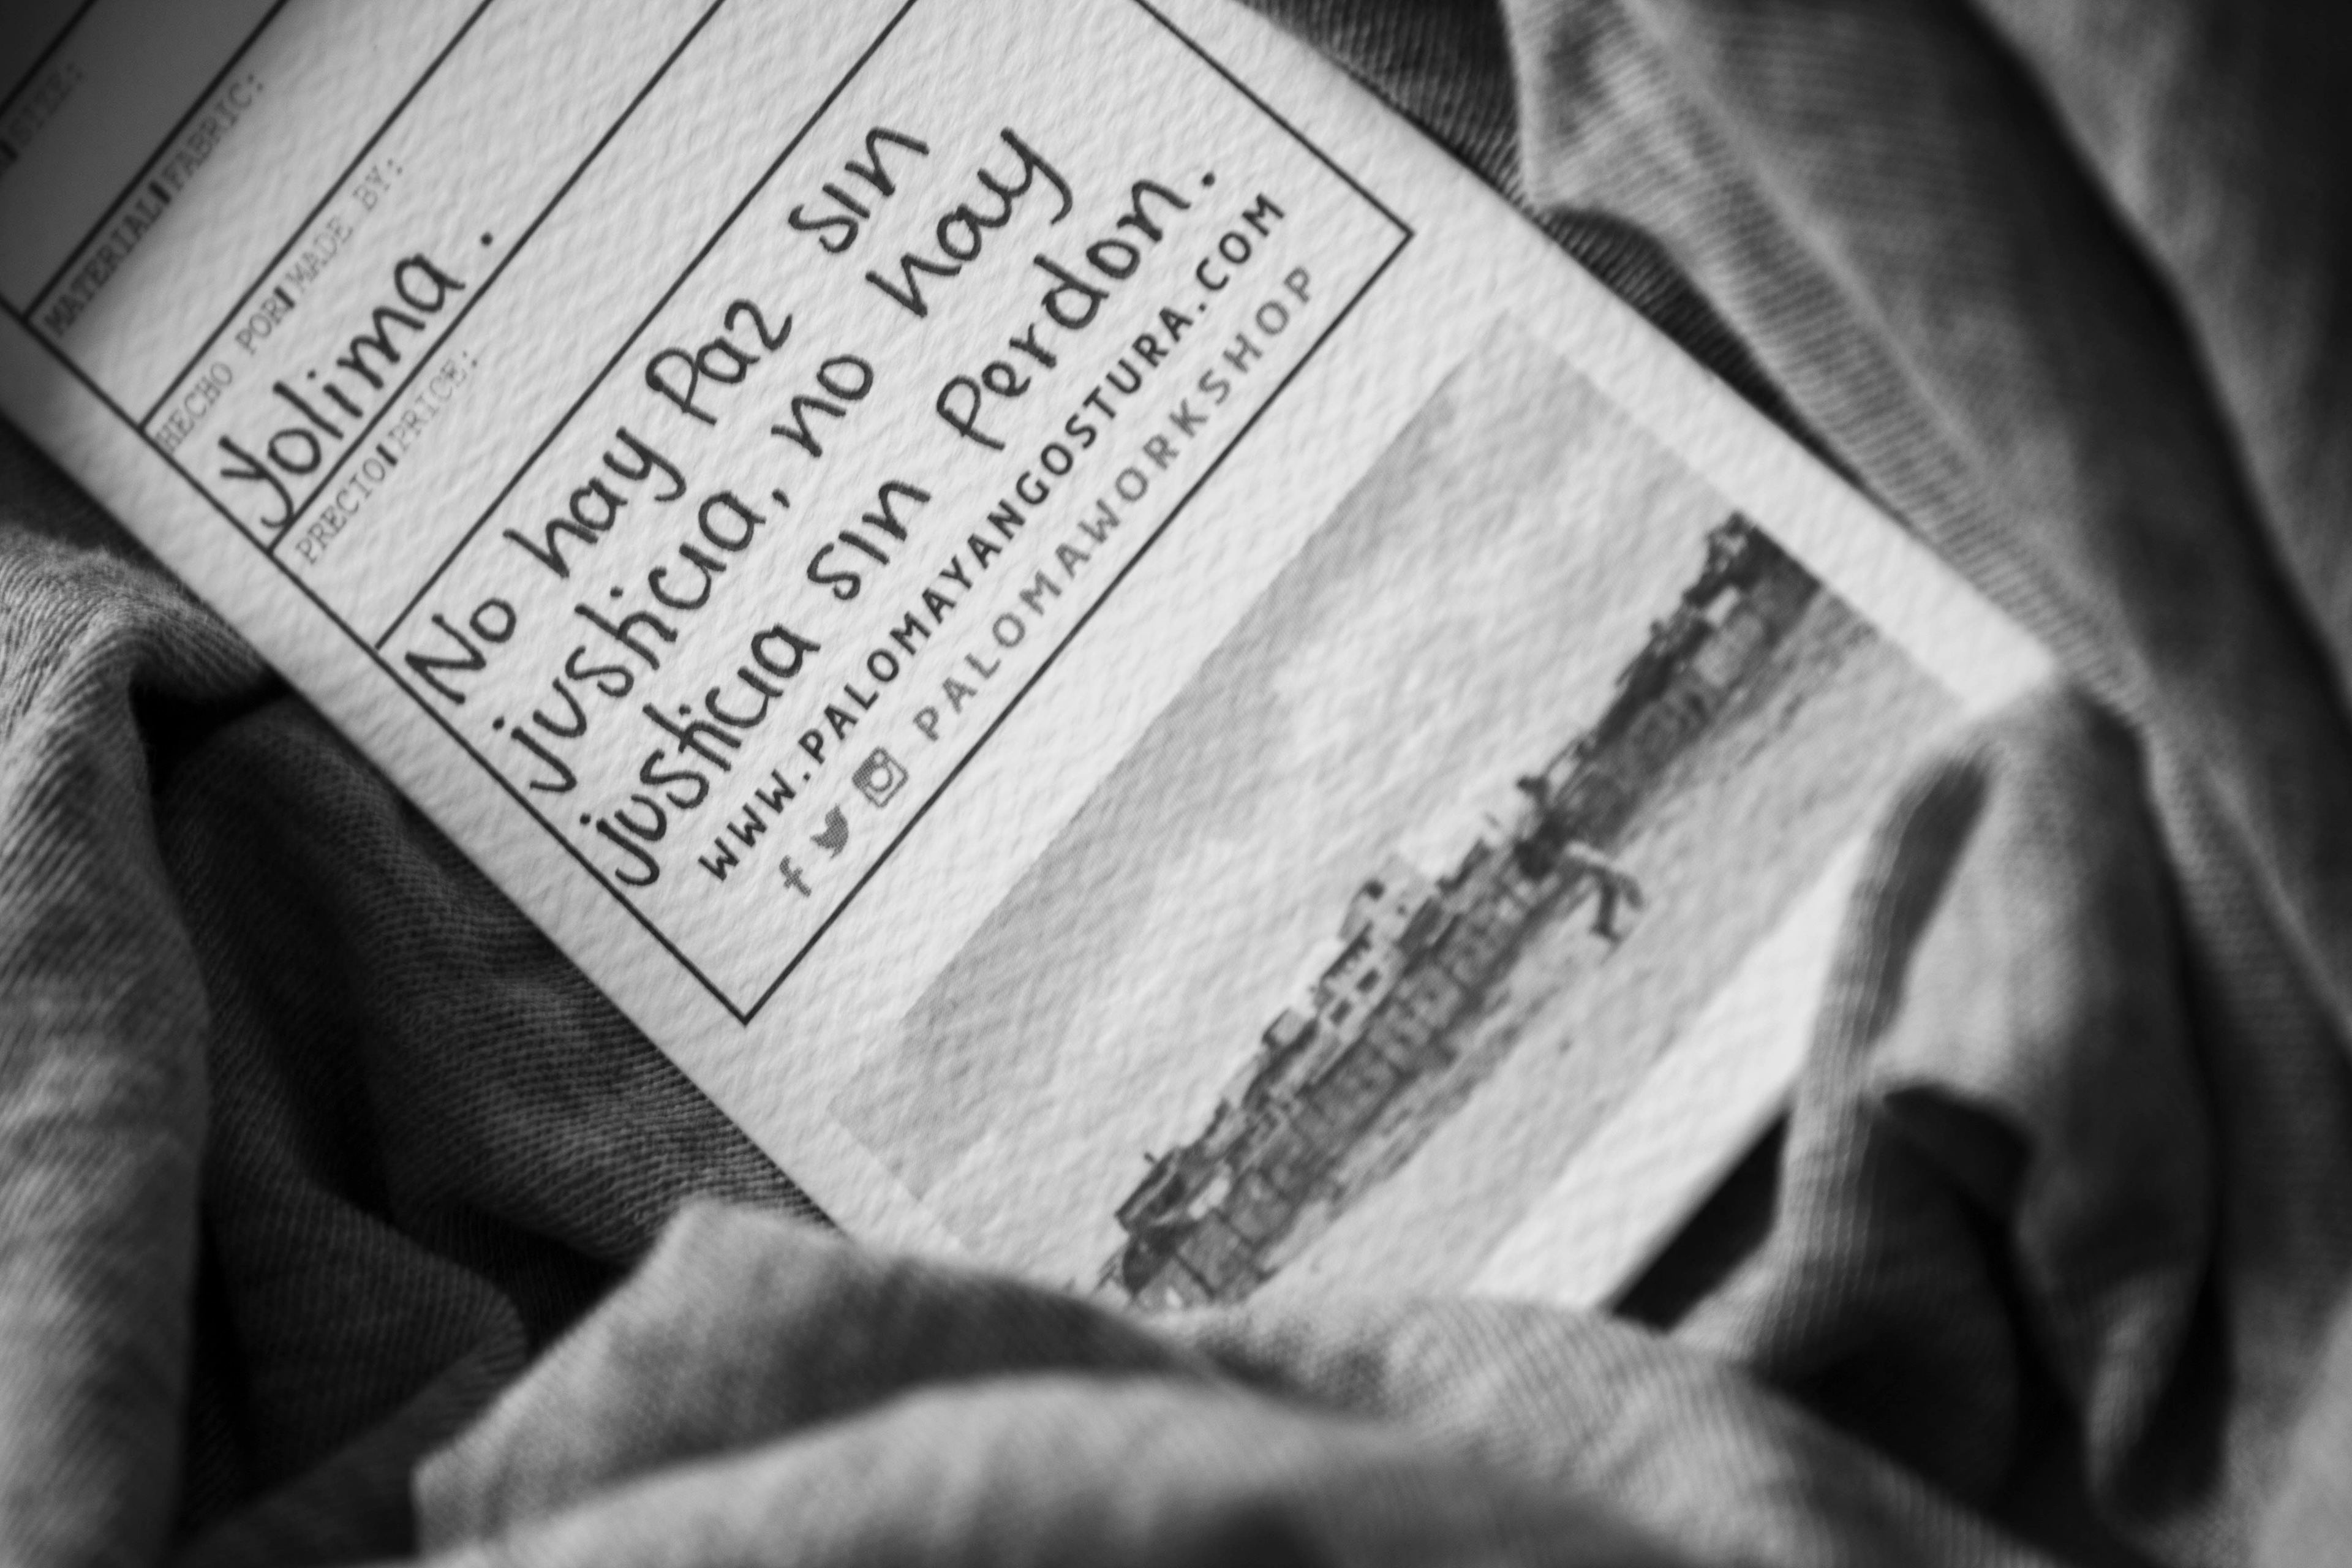 SIZE:
MATERIAL|FABRIC:
HECHO POR|MADE BY:
Yolima.
PRECIO|PRICE:
No hay Paz sin
justicia, no hay
justicia sin Perdon.
WWW.PALOMAYANGOSTURA.COM
PALOMAWORKSHOP